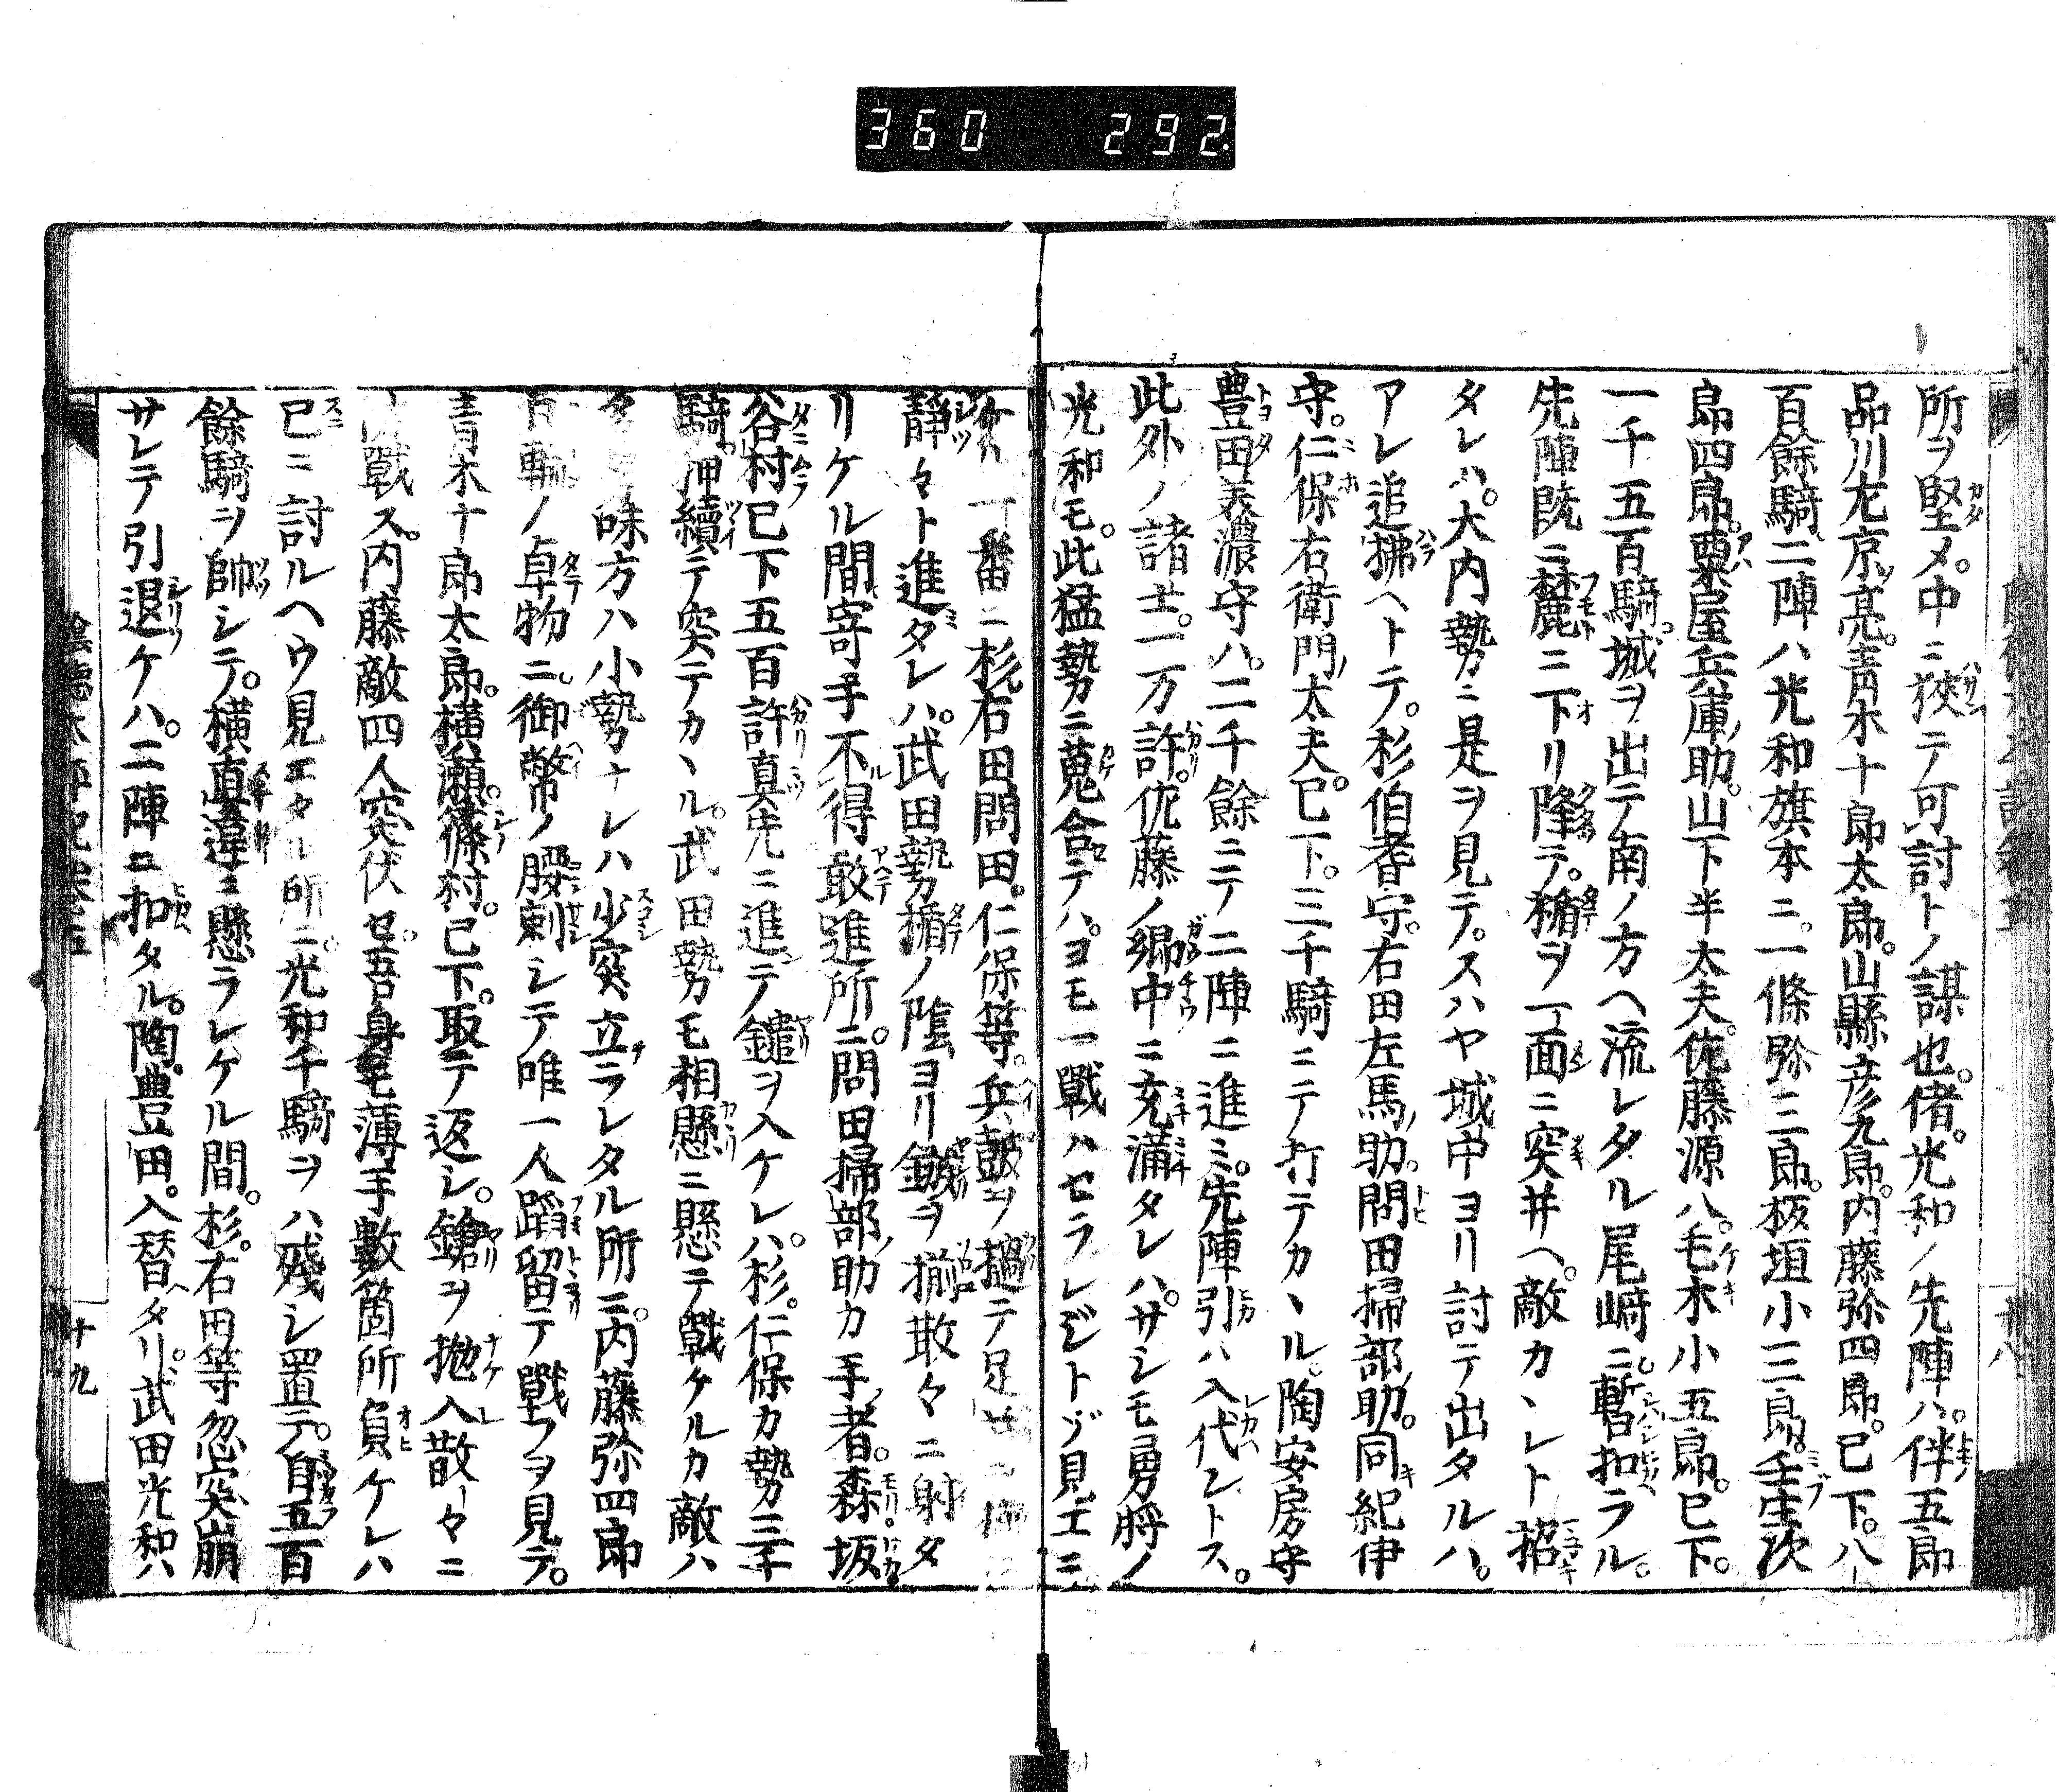 360 292
所ヲ堅メ。中ニ狹テ可討トノ謀也。偖。光和ノ先陣ハ。伴五郎
品川左京亮。青木十郎太郎。山縣彦九郎。内藤弥四郎。已下。八
百餘騎。二陣ハ光和旗本ニ。一條弥三郎。板垣小三郎。壬生次
郎四郎。粟屋兵庫助。山下半太夫。佐藤源八。毛木小五郎。已下。
一千五百騎。城ヲ出テ南ノ方ヘ流レタル尾﨑ニ暫扣ラル。
先陣既ニ麓ニ下リ降テ。楯ヲ一面ニ突并ヘ。敵カヽレト招
タレハ。大内勢ニ是ヲ見テ。スハヤ城中ヨリ討テ出タルハ。
アレ追拂ヘトテ。杉伯耆守。右田左馬助。問田掃部助。同紀伊
守。仁保右衛門太夫。已下。三千騎ニテ打テカヽル。陶安房守
豊田美濃守ハ。二千餘ニテ二陣ニ進ミ。先陣引ハ入代ントス。
此外ノ諸士。一万許。佐藤ノ郷中ニ充満タレハ。サシモ勇將ノ
光和モ。此猛勢ニ蒐合テハ。ヨモ一戰ハセラレジトゾ見エニ
ケル 一番ニ杉。右田。問田。仁保等。兵鼓ヲ撾テ足
靜々ト進タレハ。武田勢楯ノ陰ヨリ鏃ヲ揃散々ニ射タ
リケル間。寄手不得敢進所ニ。問田掃部助カ手者。森。坂。
谷村已下五百許真先ニ進テ鑓ヲ入ケレハ。杉。仁保カ勢三千
騎。押續テ突テカヽル。武田勢モ相懸ニ懸テ戰ケルカ敵ハ
味方ハ小勢ナレハ少突立ラレタル所ニ。内藤弥四郎
ノ卓物ニ。御幣ノ腰刺シテ唯一人蹈留テ戰フヲ見テ。
青木十郎太郎。横瀬。篠村。已下。取テ返シ。鎗ヲ抛入散々ニ
戰ス。内藤敵四人突伏セ。吾身毛薄手數箇所負ケレハ
已ニ討ルヘウ見エタル所ニ。光和千騎ヲハ殘シ置テ。自五百
餘騎ヲ帥シテ。横直違ニ懸ラレケル間。杉。右田等忽突崩
サレテ引退ケハ。二陣ニ扣タル。陶。豊田。入替タリ。武田光和ハ
十九